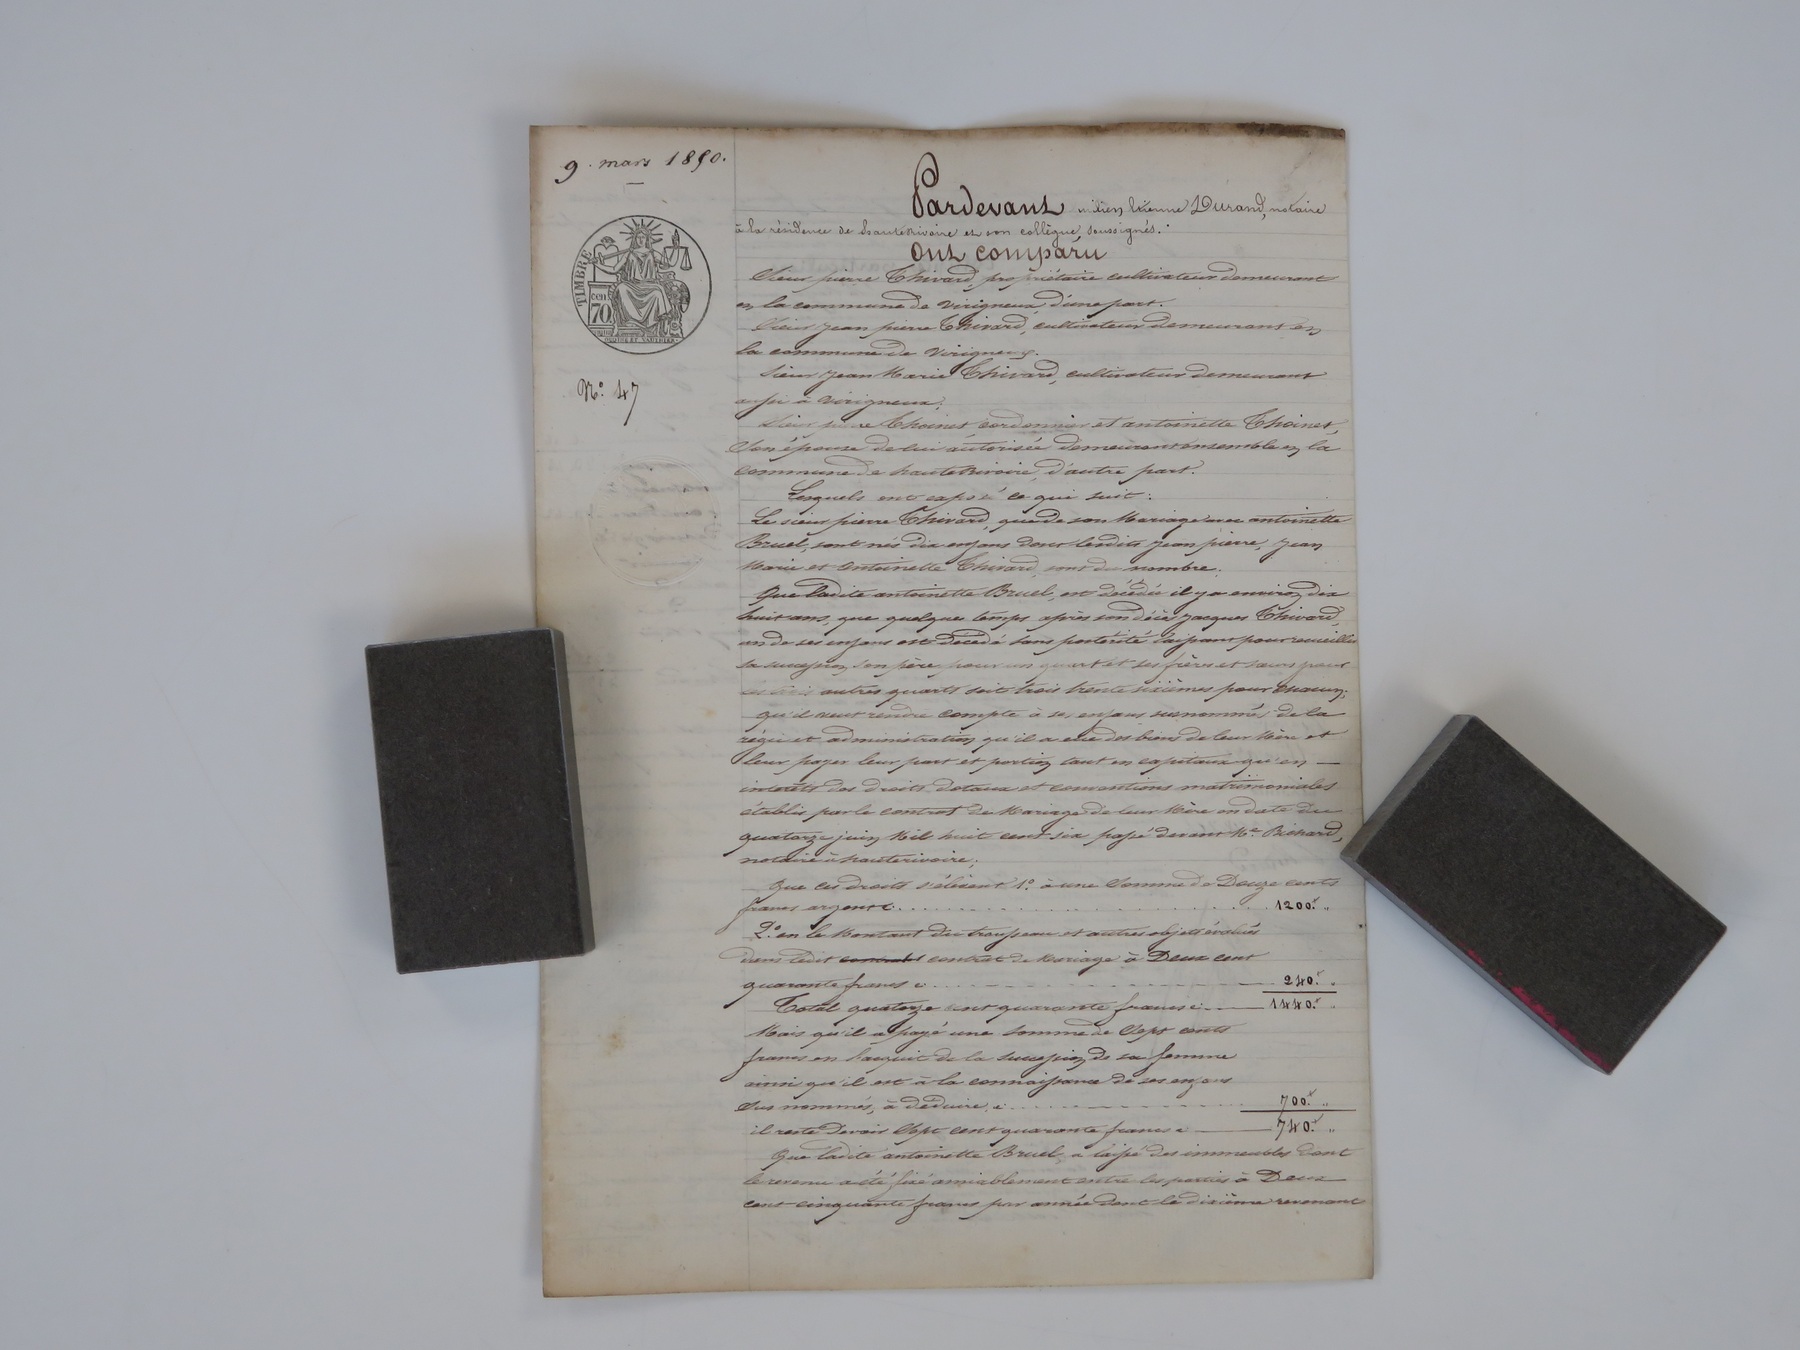 9. mars 1850.
Pardevant Etienne Durand, notaire
à la résidence de hauterivoire et son collègue, soussignés.
Ont comparu
TIMBRE
cen
70
Sieur pierre Thivard, propriétaire cultivateur demeurant
en la commune de virigneux, d'une part.
Sieur jean pierre Thivard, cultivateur demeurant en
la commune de virigneux.
Sieur jean Marie Thivard, cultivateur demeurant
N.° 47
aussi à virigneux;
Sieur pierre Thoinet cordonnier et antoinette Thoinet,
Son épouse de lui autorisée demeurant ensemble en la
commune de hauterivoire, d'autre part.
Lesquels ont exposé ce qui suit:
Le sieur pierre Thivard, que de son Mariage avec antoinette
Bruel, sont nés dix enfans dont lesdits jean pierre, jean
Marie et Antoinette Thivard, sont du nombre.
Que ladite antoinette Bruel, est décédée il y a environ dix
huit ans, que quelque temps après son décès jacques Thivard,
un de ses enfans est décédé sans postérité laissant pour recueillir
sa succession, son père pour un quart et ses frères et sœurs pour
les trois autres quarts soit trois trente sixièmes pour chacun;
qu'il veut rendre compte à ses enfans susnommés de la
régie et administration qu'il a eue des biens de leur Mère et
leur payer leur part et portion tant en capitaux qu'en —
intérêts des droits dotaux et conventions matrimoniales
établis par le contrat de Mariage de leur Mère en date du
quatorze juin Mil huit cent six passé devant Me. Bichard,
notaire à hauterivoire;
Que ces droits s'élèvent 1.° à une Somme de Douze cents
francs argent c. . . . . 1200.f "
2.° en le Montant du trousseau et autres objets évalués
dans ledit contrat contrat de Mariage à Deux cent
quarante francs c . . . . 240.f "
Total quatorze cent quarante francs c. — 1440.f "
Mais qu'il a payé une Somme de Sept cents
francs en l'acquit de la succession de sa femme
ainsi qu'il est à la connaissance de ses enfans
Sus nommés, à déduire, c . . . . 700.f "
il reste Devoir Sept cent quarante francs c — 740.f "
Que ladite antoinette Bruel, a laissé des immeubles dont
le revenu a été fixé amiablement entre les parties à Deux
cent cinquante francs par année dont le dixième revenant